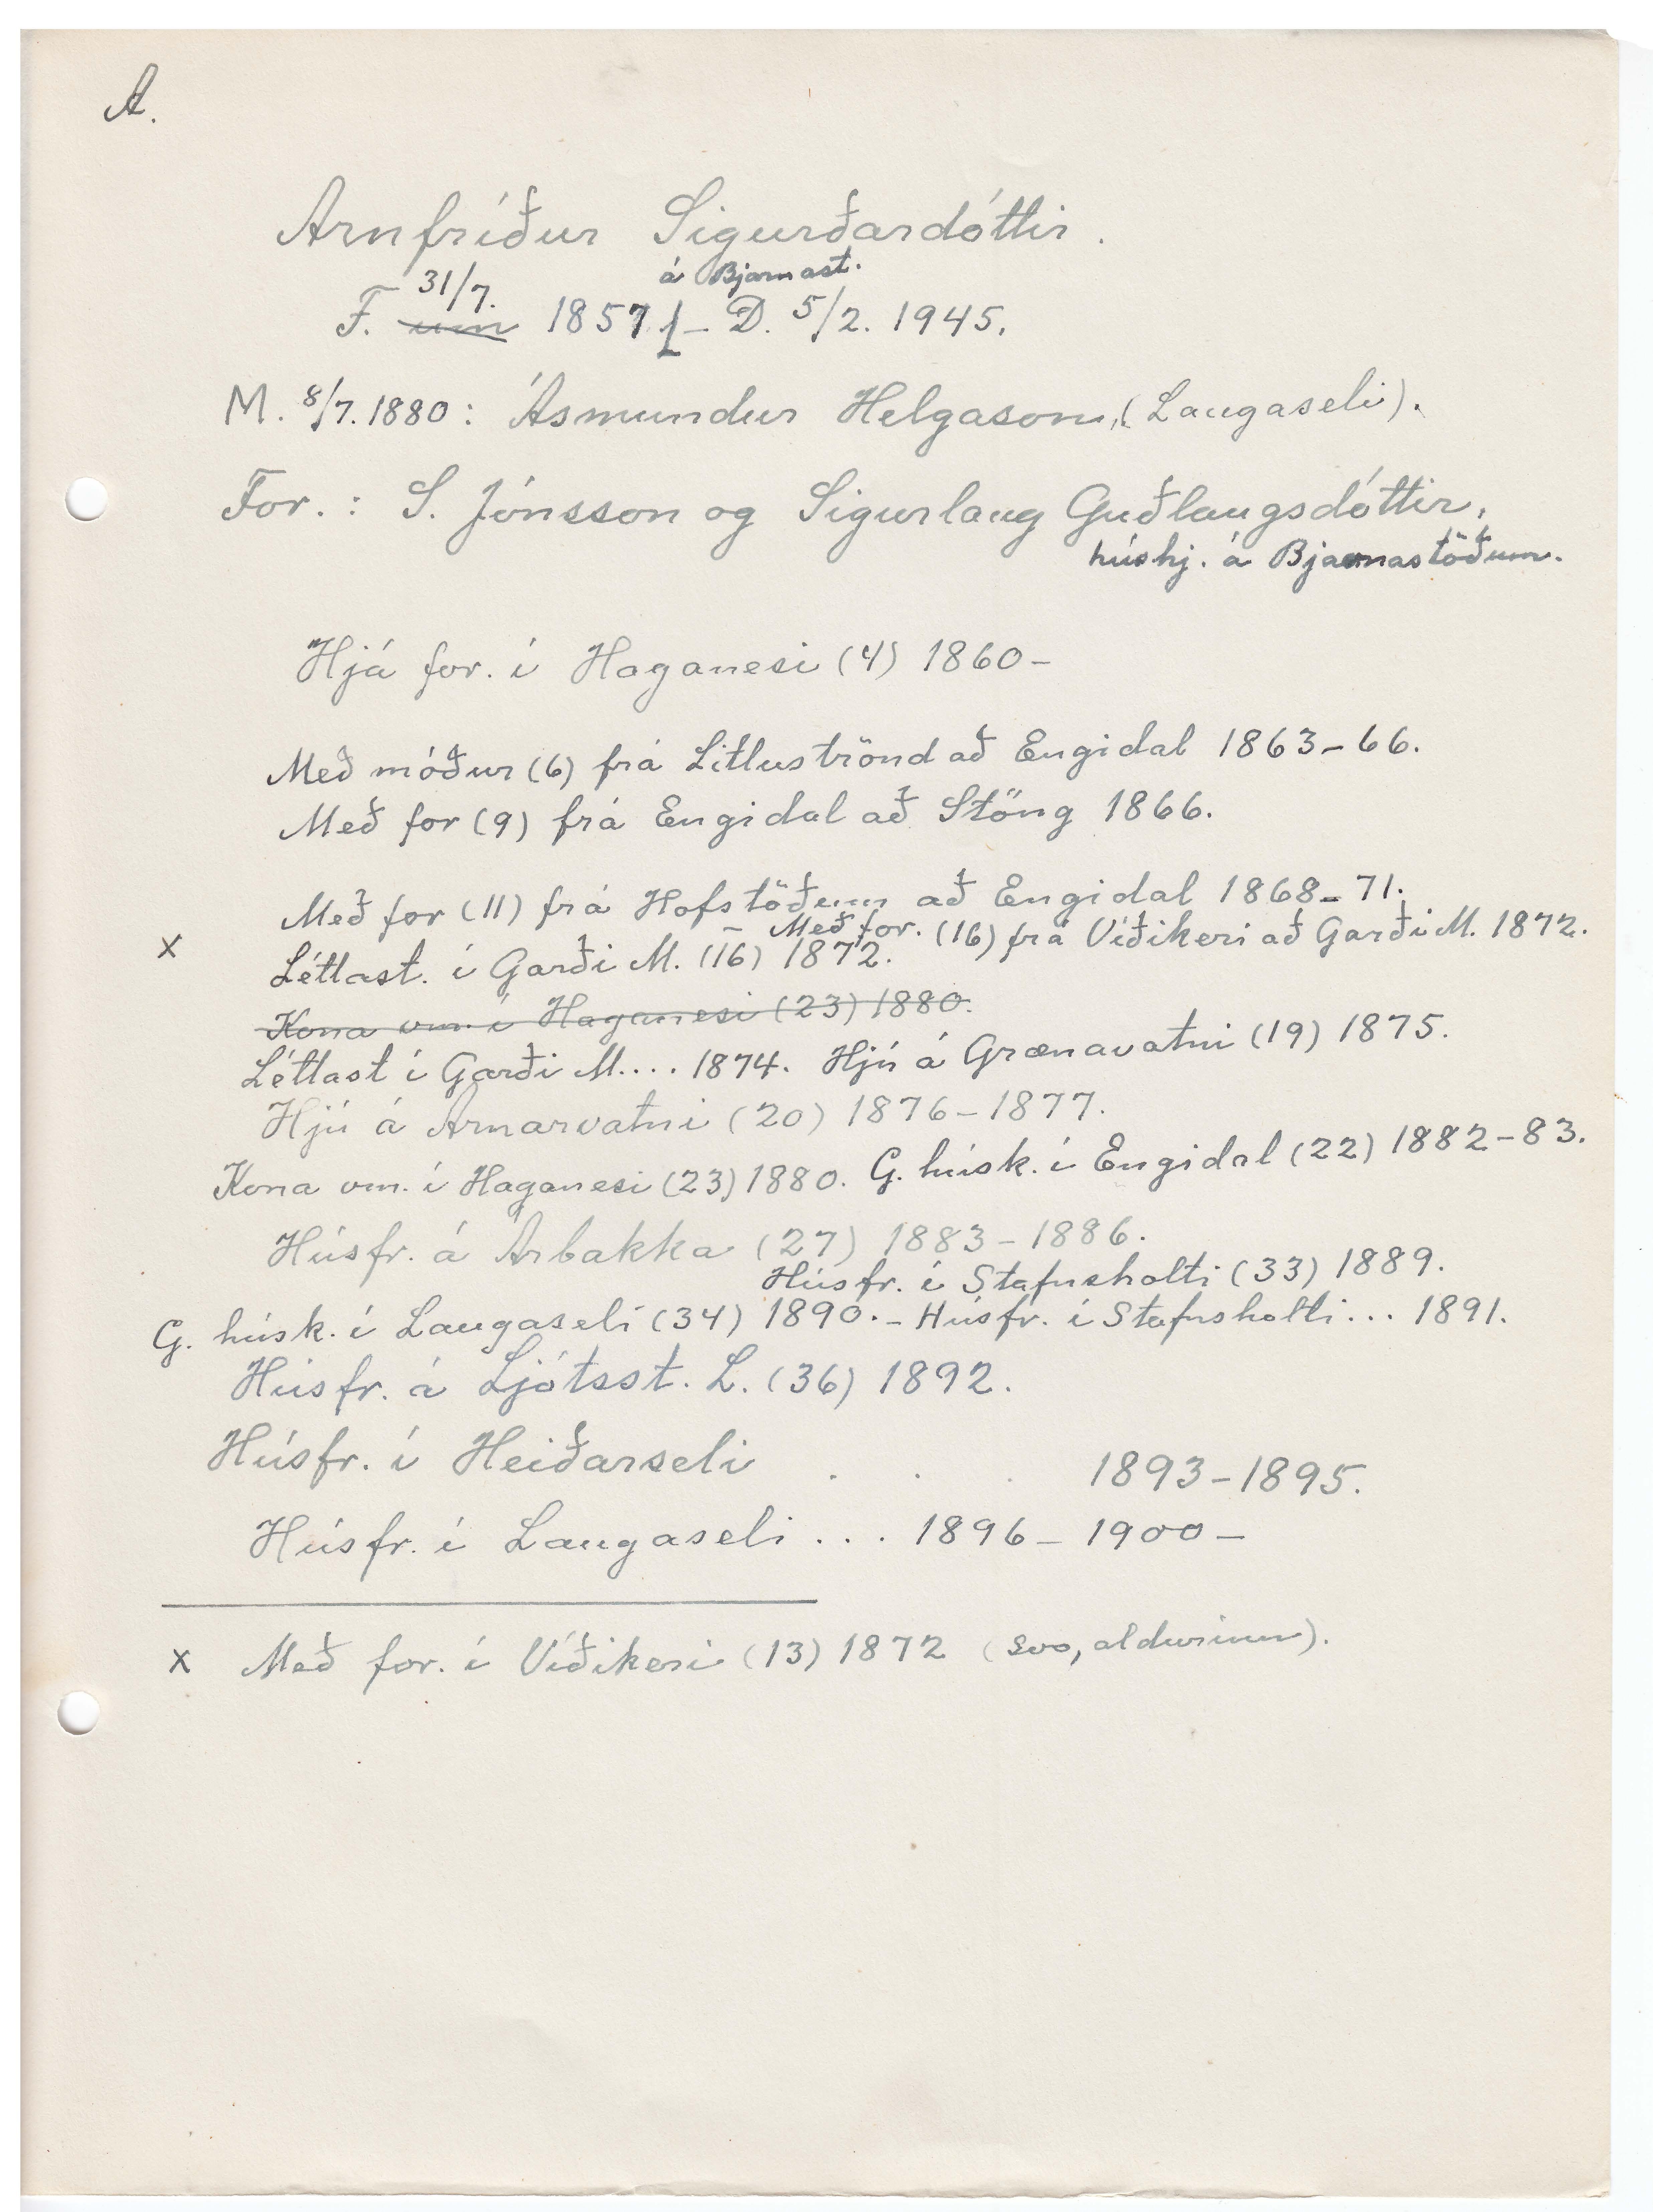 A.
Arnfríður Sigurðardóttir.
31/7. á Bjarnast.
F. um 1857 – D. 5/2. 1945.
M. 8/7. 1880: Ásmundur Helgason, (Laugaseli).
For.: S. Jónsson og Sigurlaug Guðlaugsdóttir,
húshj. á Bjarnastöðum.
Hjá for. í Haganesi (4) 1860–
Með móður (6) frá Litluströnd að Engidal 1863–66.
Með for (9) frá Engidal að Stöng 1866.
Með for (11) frá Hofstöðum að Engidal 1868–71.
– Með for. (16) frá Víðikeri að Garði M. 1872.
x Léttast. í Garði M. (16) 1872.
Kona vm. í Haganesi (23) 1880.
Léttast í Garði M.... 1874. Hjú á Grænavatni (19) 1875.
Hjú á Arnarvatni (20) 1876–1877.
Kona vm. í Haganesi (23) 1880. G. húsk. í Engidal (22) 1882–83.
Húsfr. á Árbakka (27) 1883–1886.
Húsfr. í Stafnsholti (33) 1889.
G. húsk. í Laugaseli (34) 1890. – Húsfr. í Stafnsholti... 1891.
Húsfr. á Ljótsst. L. (36) 1892.
Húsfr. í Heiðarseli . . . 1893–1895.
Húsfr. í Laugaseli . . . 1896–1900–
x Með for. í Víðikeri (13) 1872 (svo, aldurinn).